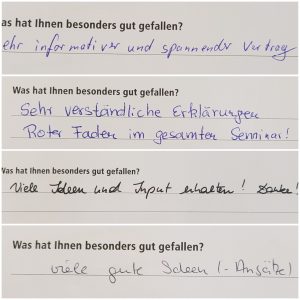 as hat Ihnen besonders gut gefallen?
ehr informativer und spannender Vortrag
Was hat Ihnen besonders gut gefallen?
Sehr verständliche Erklärungen
Roter Faden im gesamten Seminar!
Was hat Ihnen besonders gut gefallen?
Viele Ideen und Input erhalten! Danke!
Was hat Ihnen besonders gut gefallen?
viele gute Ideen (-Ansätze)